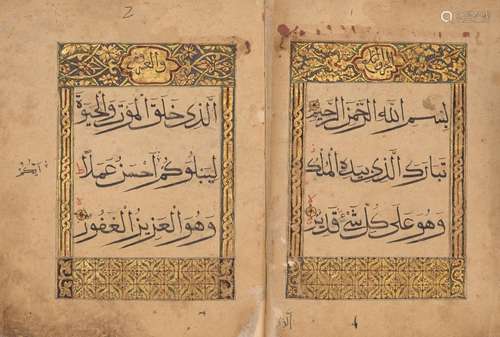 1
بسم الله الرحمن الرحيم
تبارك الذي بيده الملك
وهو على كل شئ قدير
الذي
2
الذي خلق الموت والحيوة
ليبلوكم احسن عملا
ايكم
وهو العزيز الغفور